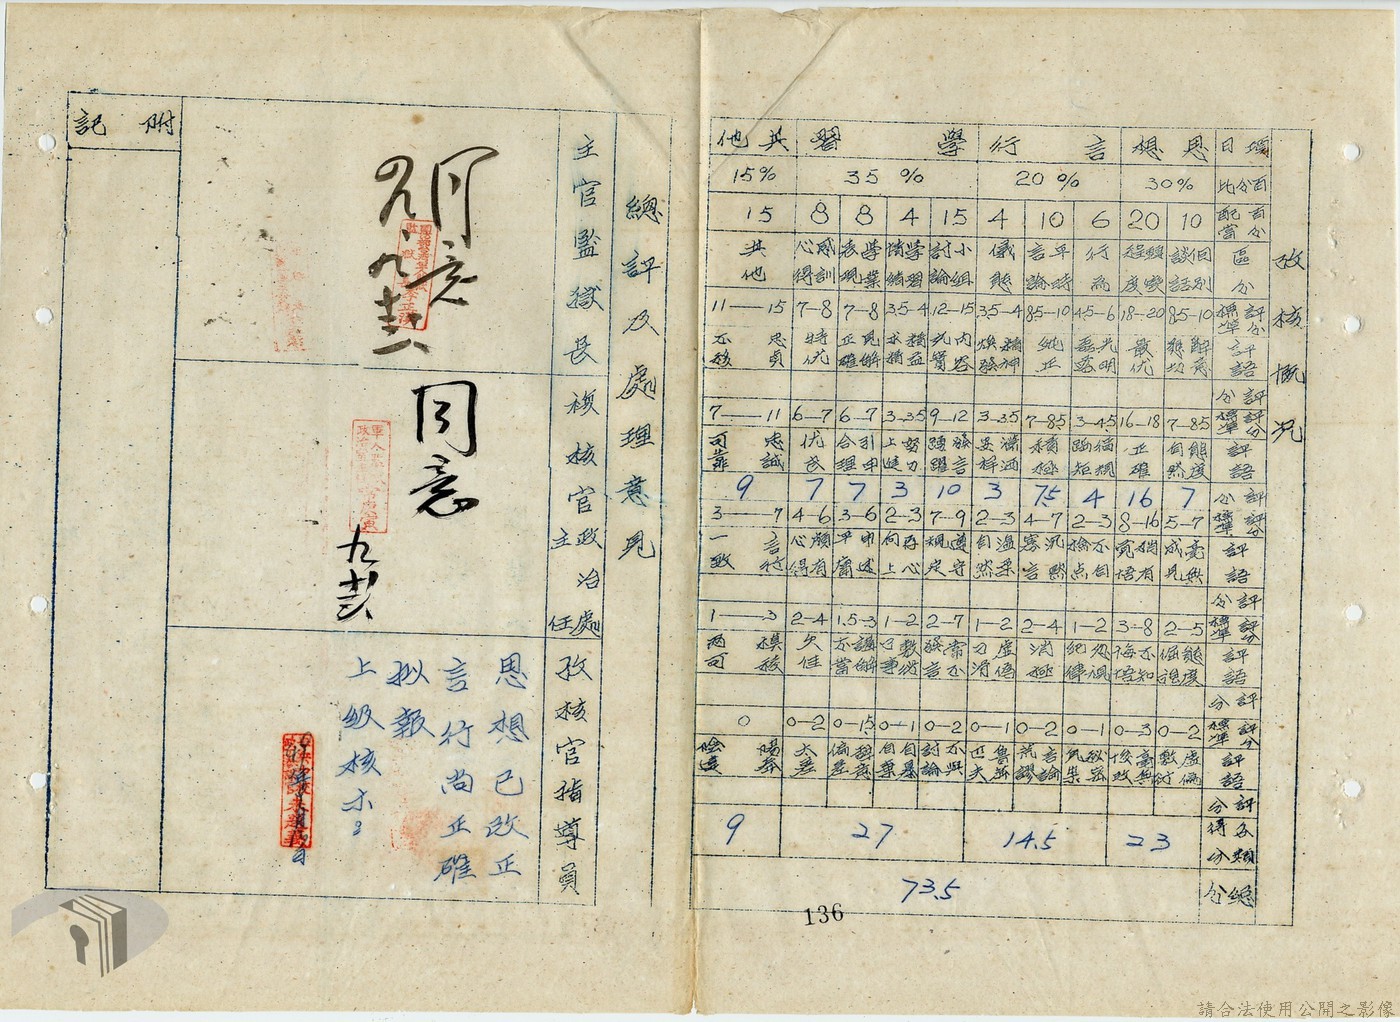 考核概況
項目 思想 言行 學習 其他
百分比 30% 20% 35% 15%
百分配當 10 20 6 10 4 15 4 8 8 15
區分 個別談話 轉變程度 行為 平時言論 儀態 小組討論 學習情緒 學業表現 感訓心得 其他
評分標準 8.5-10 18-20 4.5-6 8.5-10 3.5-4 12-15 3.5-4 7-8 7-8 11—15
評語 解意懇切 最優 光明磊落 純正 精神煥發 內容充實 精益求精 見解正確 特優 忠貞不移
評分
評分標準 7-8.5 16-18 3-4.5 7-8.5 3-3.5 9-12 3-3.5 6-7 6-7 7—11
評語 態度自然 正確 循規蹈矩 積極 瀟洒 發言踴躍 努力上進 引申合理 優良 忠誠可靠
評分 7 16 4 7.5 3 10 3 7 7 9
評分標準 5-7 8-16 2-3 4-7 2-3 7-9 2-3 3-6 4-6 3—7
評語 毫無成見 稍有覺悟 不檢點 沉默寡言 溫柔自然 遵守規定 存心向上 申述平庸 頗有心得 言行一致
評分
評分標準 2-5 3-8 1-2 2-4 1-2 2-7 1-2 1.5-3 2-4 1—3
評語 態度倔強 不知悔悟 消極 虛偽刁滑 敷衍了事 誤解不當 欠佳 模稜兩可
評分
評分標準 0-2 0-3 0-1 0-2 0-1 0-2 0-1 0-1.5 0-2 0
評語 虛偽敷衍 言論荒謬 魯莽匹夫 不與討論 自暴自棄 太差 陽奉陰違
評分
各類得分 23 14.5 27 9
總分 73.5
136
總評及處理意見
主官監獄長
複核官政治處主任
考核官指導員
同意
九、廿六
同意
九廿六
思想已改正
言行尚正確
擬報
上級核示
附記
請合法使用公開之影像